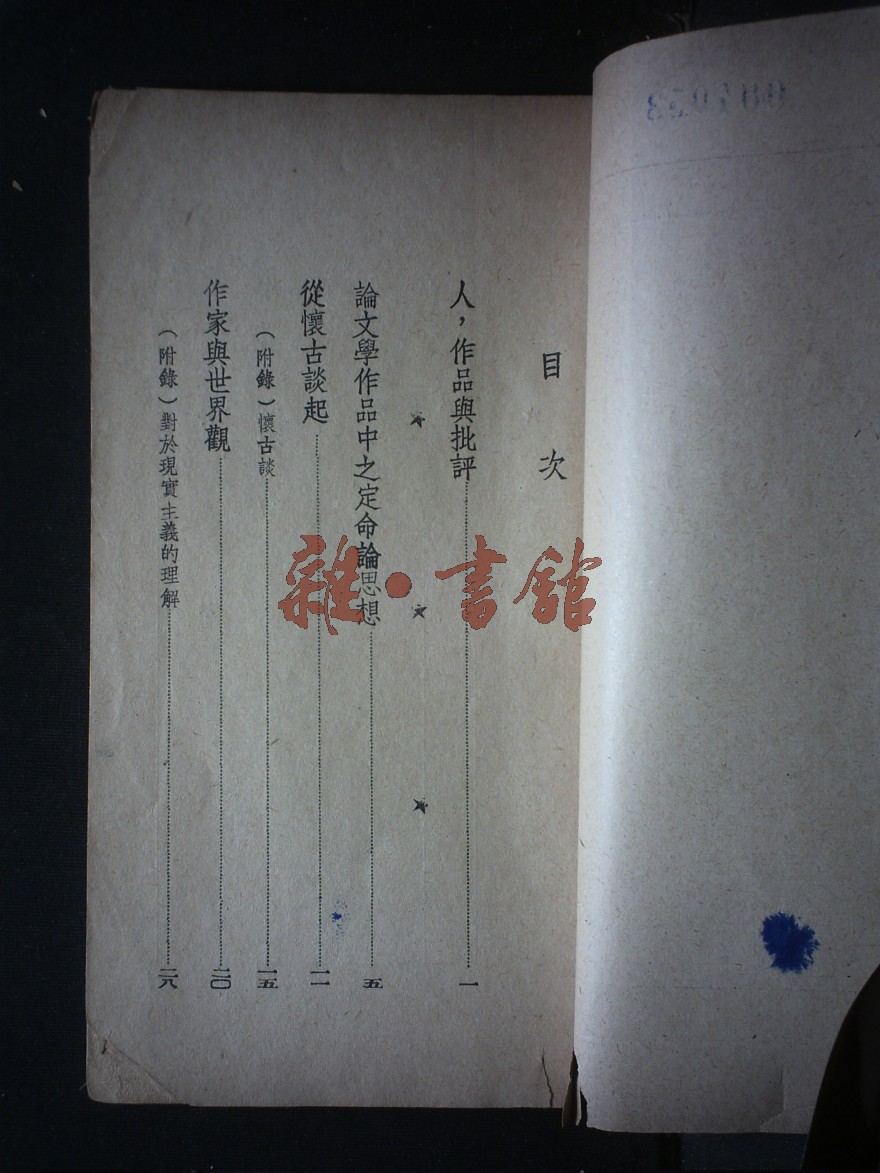 目次
人，作品與批評……一
論文學作品中之定命論思想……五
從懷古談起……一一
（附錄）懷古談……一五
作家與世界觀……二〇
（附錄）對於現實主義的理解……二八
雜·書館